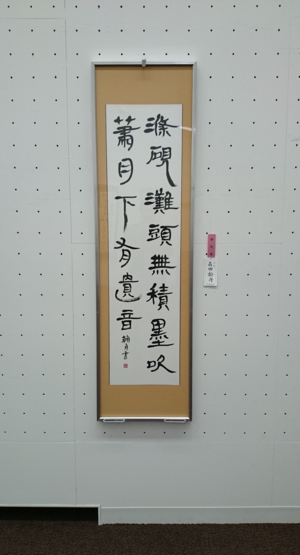 滌硯灘頭無積墨吹
簫月下有遺音